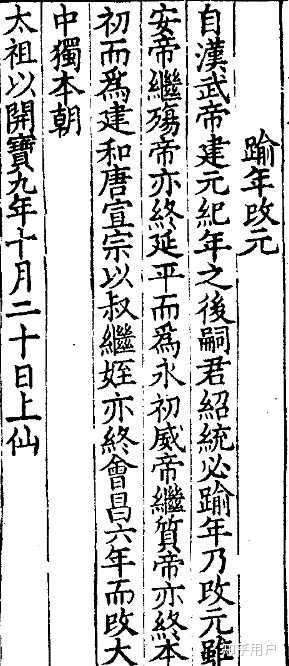 踰年改元
自漢武帝建元紀年之後嗣君紹統必踰年乃改元雖
安帝繼殤帝亦終延平而爲永初威帝繼質帝亦終本
初而爲建和唐宣宗以叔繼姪亦終會昌六年而改大
中獨本朝
太祖以開寶九年十月二十日上仙
知乎用户